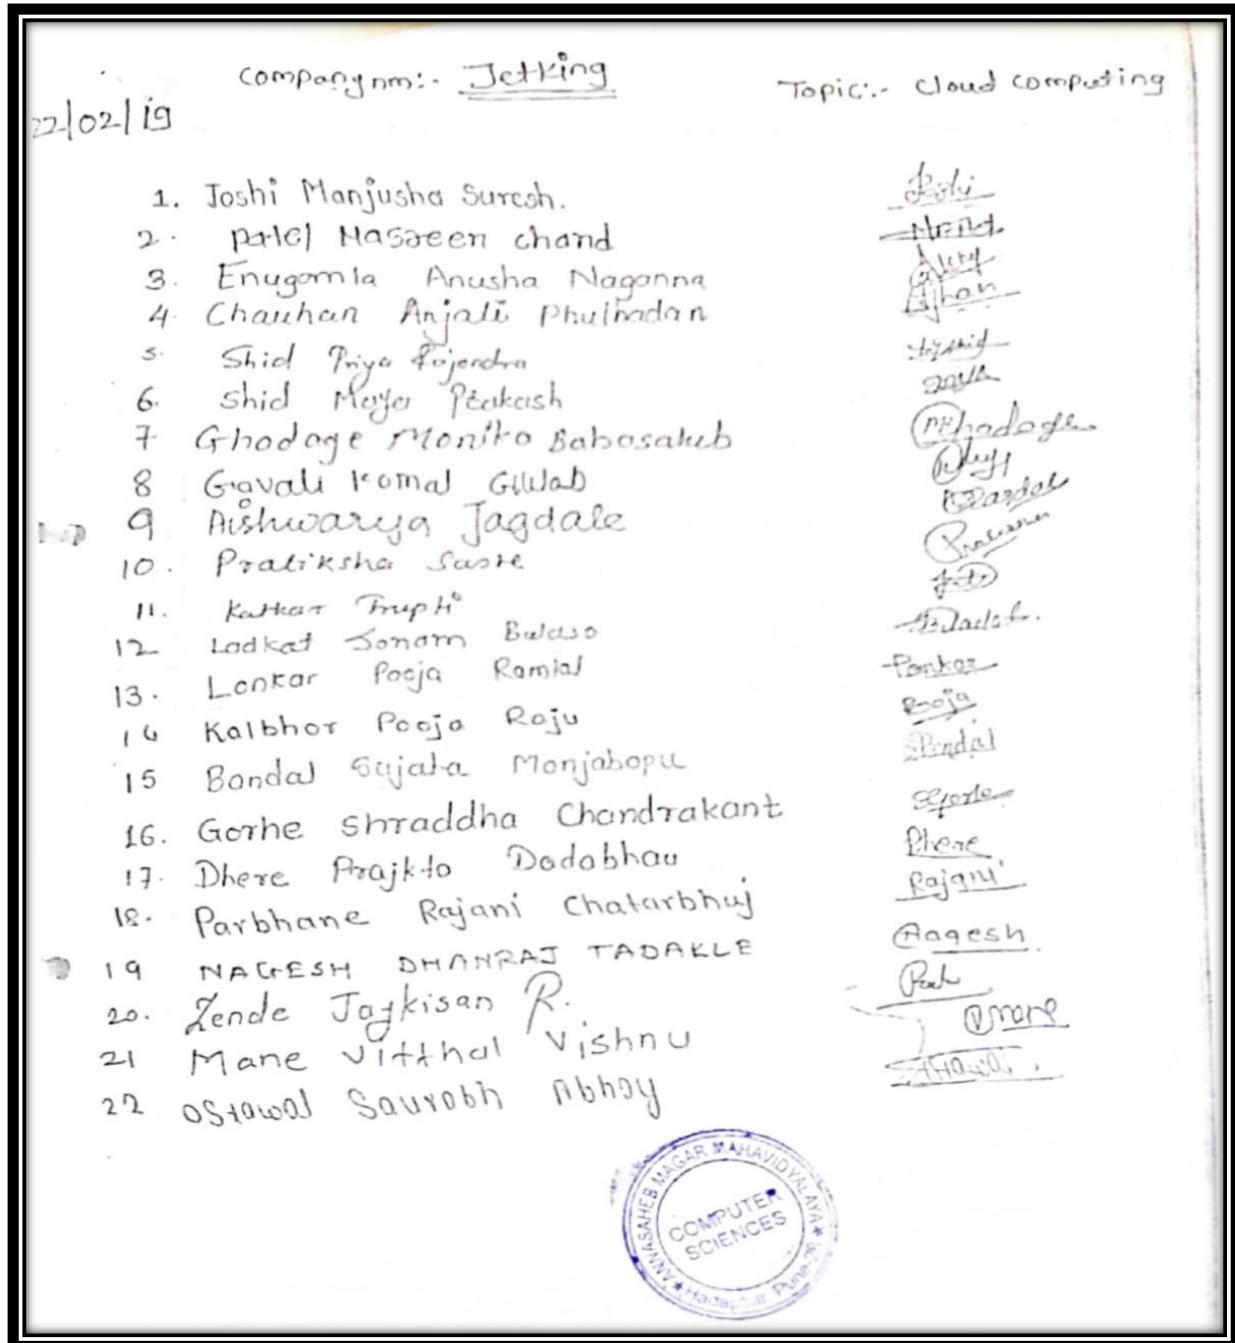 Company nm:- Jetking
Topic:- Cloud computing
22/02/19
1. Joshi Manjusha Suresh. Joshi
2. Patel Nasreen chand
3. Enugamla Anusha Naganna
4. Chauhan Anjali Phulbadan
5. Shid Priya Rajendra
6. Shid Maya Prakash
7 Ghadage Monika Babasaheb
8 Gavali Komal Gulab
9 Aishwarya Jagdale
10. Pratiksha Saste
11. Katkar Trupti
12 Ladkat Sonam Balaso
13. Lonkar Pooja Ramlal
14 Kalbhor Pooja Raju Pooja
15 Bandal Sujata Manjabapu
16. Gorhe Shraddha Chandrakant
17. Dhere Prajkta Dadabhau Dhere
18. Parbhane Rajani Chatarbhuj Rajani
19 NAGESH DHANRAJ TADAKLE Nagesh
20. Zende Jaykisan R.
21 Mane Vitthal Vishnu Vmane
22 Ostawal Saurabh Abhay
ANNASAHEB MAGAR MAHAVIDYALAYA
COMPUTER
SCIENCES
Hadapsar Pune-28